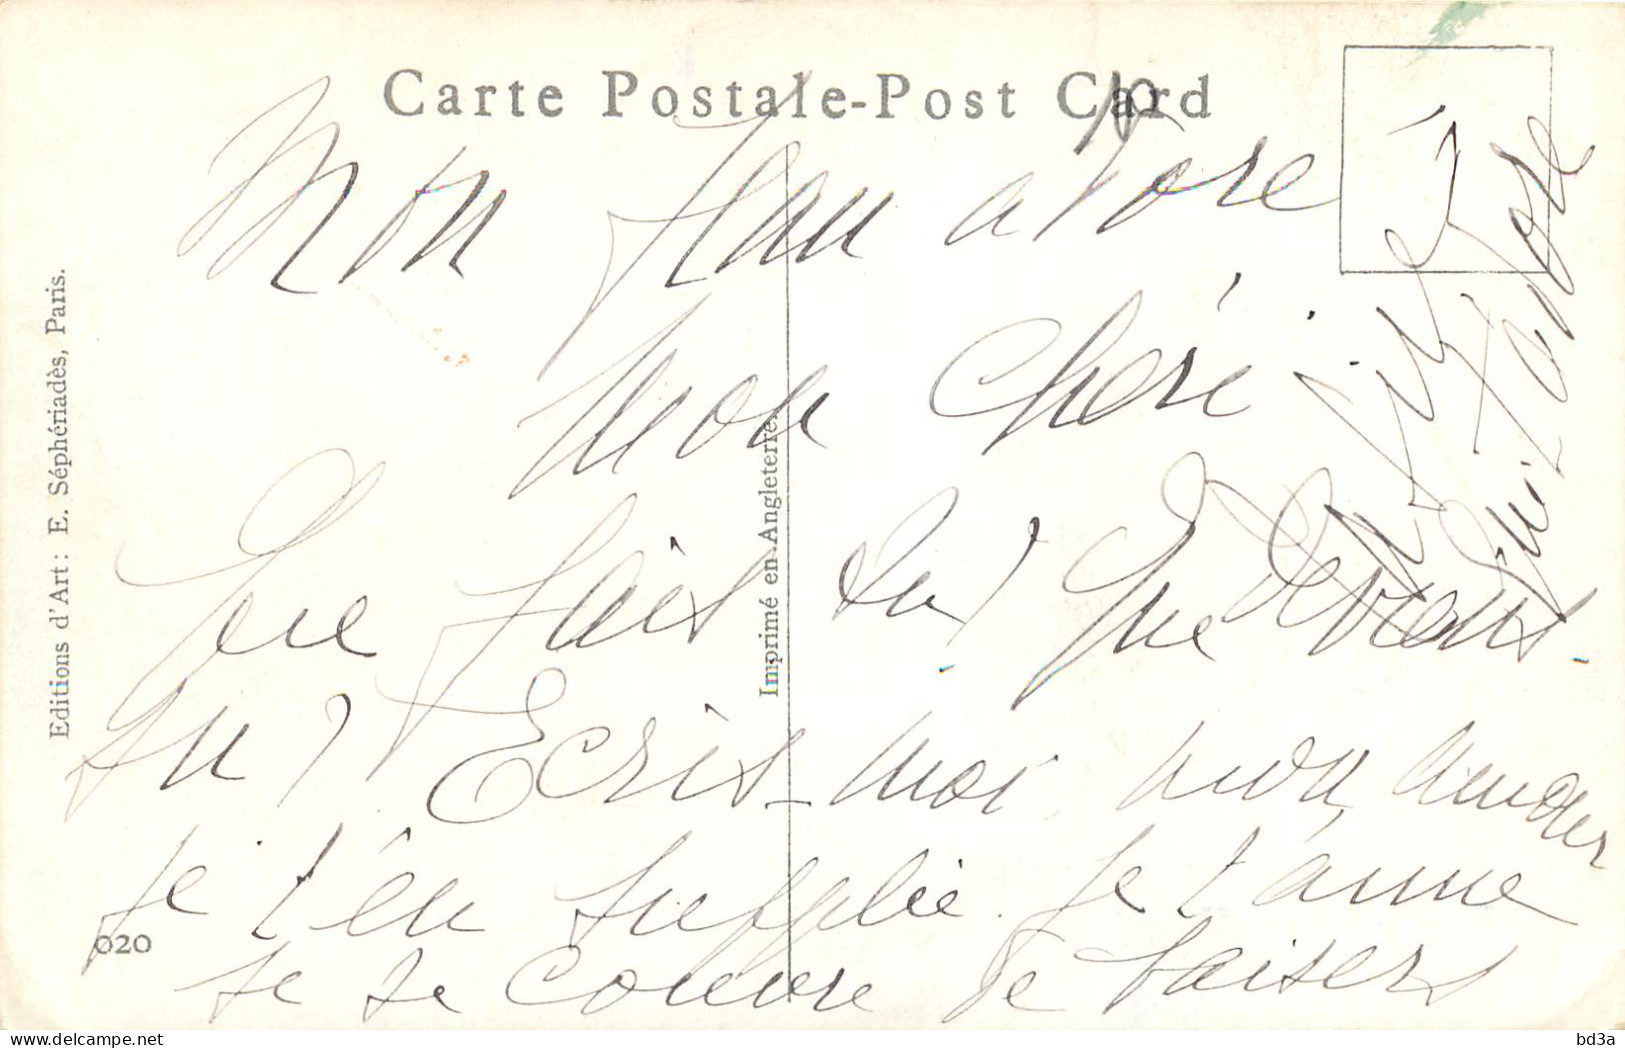 Carte Postale-Post Card
Mon Jean adoré
Mon Chéri
Que fais tu? Que deviens-
tu? Ecris-moi mon amour
Je t'en supplie. Je t'aime
Je te couvre de baisers
qui t'adore
Editions d'Art: E. Séphériadès, Paris.
Imprimé en Angleterre.
020
delcampe.net
bd3a